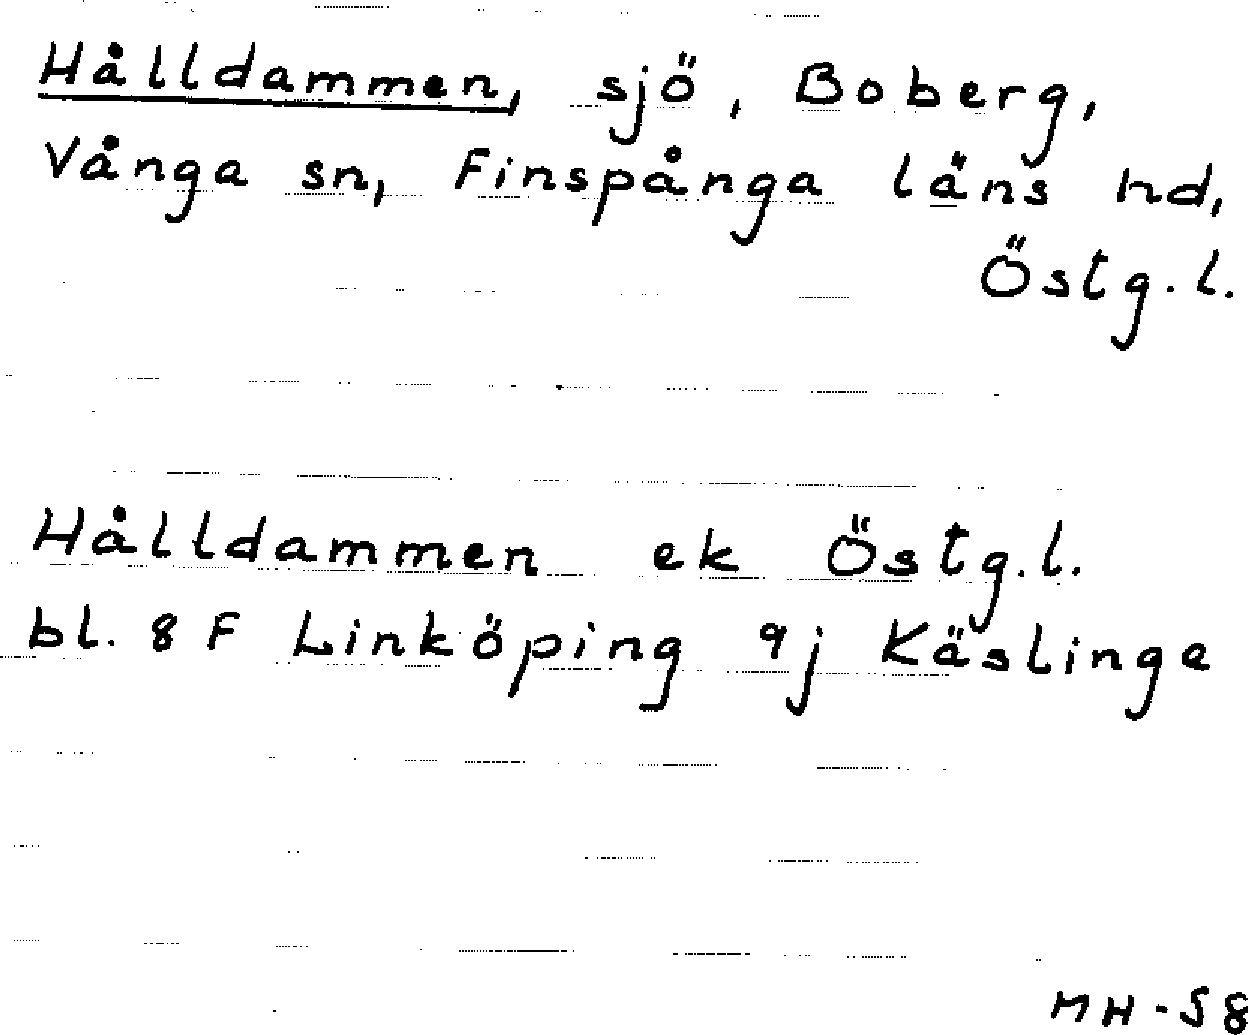 Hålldammen, sjö, Boberg,
Vånga sn, Finspånga läns hd,
Östg.l.
Hålldammen ek Östg.l.
bl. 8 F Linköping 9j Käslinge
MH-58